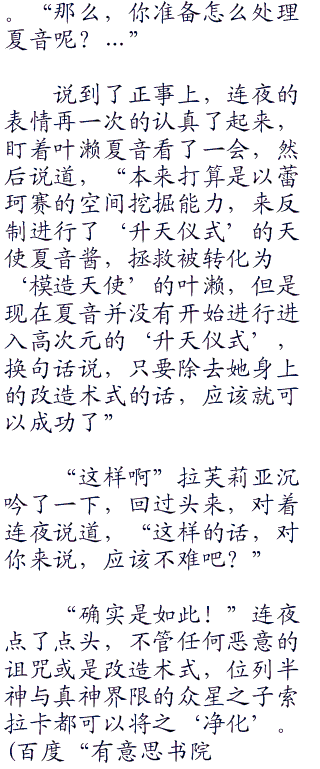 。“那么，你准备怎么处理
夏音呢？…”
说到了正事上，连夜的
表情再一次的认真了起来，
盯着叶濑夏音看了一会，然
后说道，“本来打算是以蕾
珂赛的空间挖掘能力，来反
制进行了‘升天仪式’的天
使夏音酱，拯救被转化为
‘模造天使’的叶濑，但是
现在夏音并没有开始进行进
入高次元的‘升天仪式’，
换句话说，只要除去她身上
的改造术式的话，应该就可
以成功了”
“这样啊”拉芙莉亚沉
吟了一下，回过头来，对着
连夜说道，“这样的话，对
你来说，应该不难吧？”
“确实是如此！”连夜
点了点头，不管任何恶意的
诅咒或是改造术式，位列半
神与真神界限的众星之子索
拉卡都可以将之‘净化’。
(百度“有意思书院